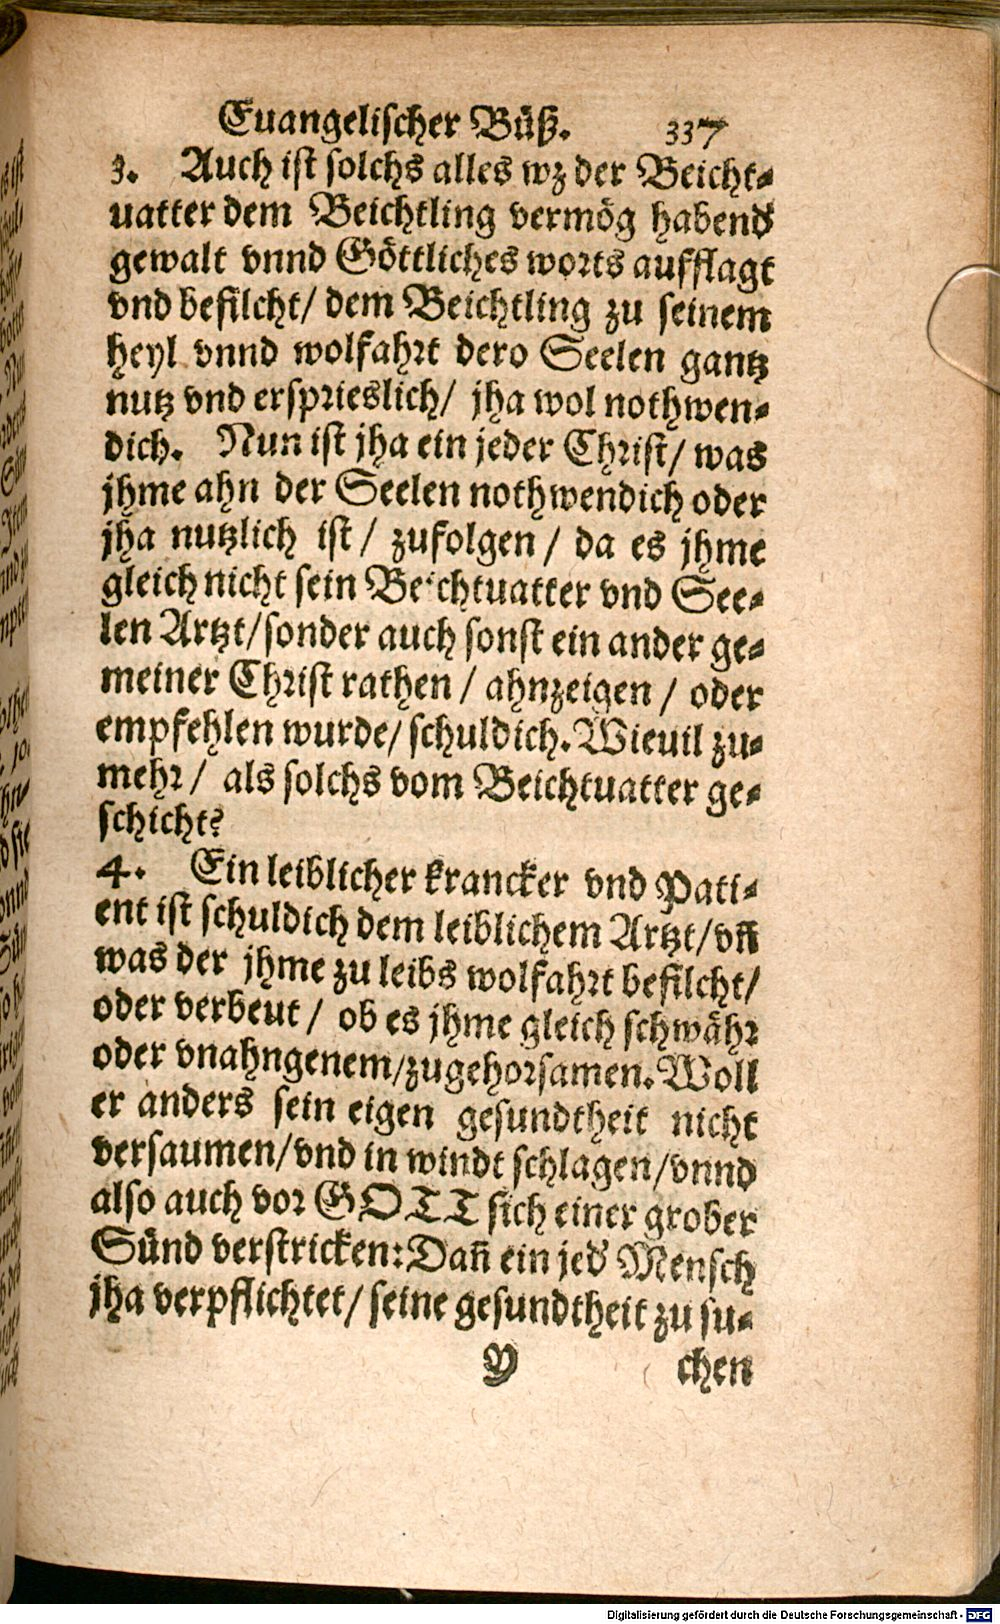 Euangelischer Büß. 337
3. Auch ist solchs alles wz der Beicht-
uatter dem Beichtling vermög habend'
gewalt vnnd Göttliches worts aufflagt
vnd befilcht/ dem Beichtling zu seinem
heyl vnnd wolfahrt dero Seelen gantz
nutz vnd ersprieslich/ jha wol nothwen-
dich. Nun ist jha ein jeder Christ/ was
jhme ahn der Seelen nothwendich oder
jha nutzlich ist / zufolgen / da es jhme
gleich nicht sein Beichtuatter vnd See-
len Artzt/sonder auch sonst ein ander ge-
meiner Christ rathen / ahnzeigen / oder
empfehlen wurde/ schuldich. Wieuil zu-
mehr / als solchs vom Beichtuatter ge-
schicht?
4. Ein leiblicher krancker vnd Pati-
ent ist schuldich dem leiblichem Artzt/vn̄
was der jhme zu leibs wolfahrt befilcht/
oder verbeut / ob es jhme gleich schwähr
oder vnahngenem/zugehorsamen. Woll
er anders sein eigen gesundtheit nicht
versaumen/vnd in windt schlagen/vnnd
also auch vor GOTT sich einer grober
Sünd verstricken: Dan̄ ein jed' Mensch
jha verpflichtet/ seine gesundtheit zu su-
Y chen
Digitalisierung gefördert durch die Deutsche Forschungsgemeinschaft - DFG